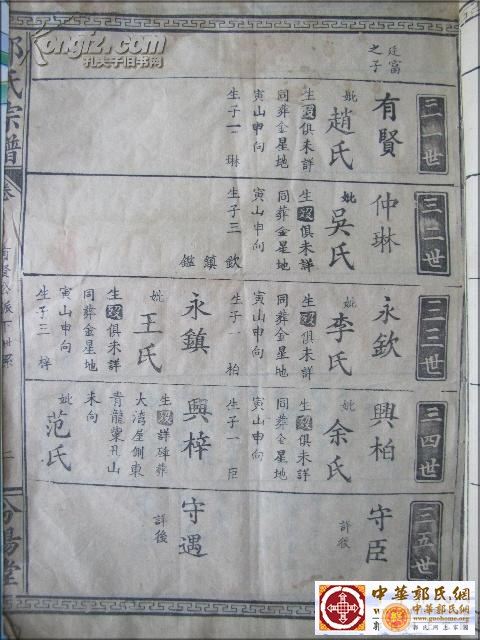 Kongfz.com
孔夫子旧书网
郭氏宗譜
卷
二
汾陽堂
三一世
廷富
之子
有賢
妣趙氏
生歿俱未詳
同葬金星地
寅山申向
生子一 琳
三二世
仲琳
妣吳氏
生歿俱未詳
同葬金星地
寅山申向
生子三 欽 鎮 鑑
三三世
永欽
妣李氏
生歿俱未詳
同葬金星地
寅山申向
生子一 柏
永鎮
妣王氏
生歿俱未詳
同葬金星地
寅山申向
生子三 梓
三四世
興柏
妣余氏
生歿俱未詳
同葬金星地
寅山申向
生子一 臣
興梓
生歿詳碑葬
大灣屋側東
青龍窠孔山
未向
妣范氏
三五世
守臣
詳後
守遇
詳後
中華郭氏網
中华郭氏网
www.guohome.org
郭氏網上家園